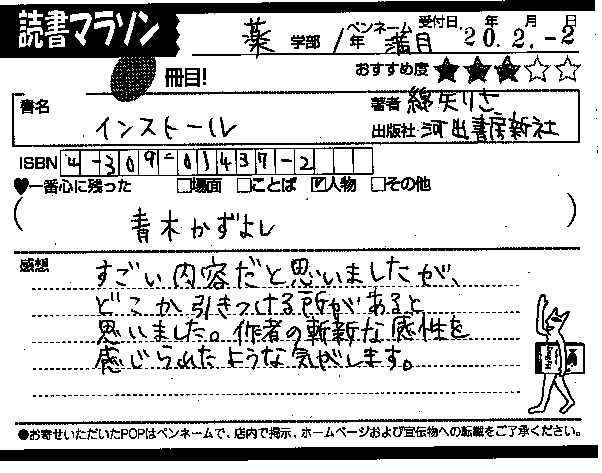 読書マラソン
薬 学部 / 年 ペンネーム 満月 受付日. 20.年 2.月 -2日
冊目! おすすめ度 ★★★☆☆
書名 インストール
著者 綿矢りさ
出版社 河出書房新社
ISBN 4-309-01437-2
♥一番心に残った □場面 □ことば ☑人物 □その他
(青木かずよし)
感想
すごい内容だと思いましたが、
どこか引きつける所があると
思いました。作者の斬新な感性を
感じられたような気がします。
●お寄せいただいたPOPはペンネームで、店内で掲示、ホームページおよび宣伝物への転載をご了承ください。